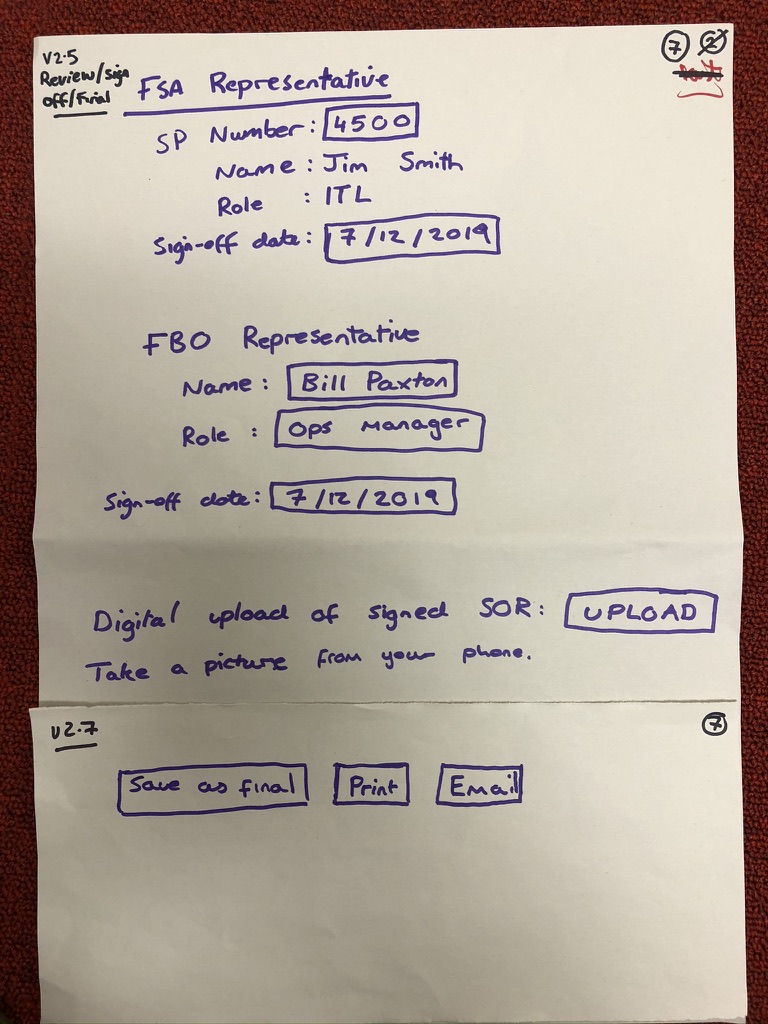 V2.5
Review/sign
off/Final
7 2
FSA Representative
SP Number: 4500
Name: Jim Smith
Role : ITL
Sign-off date: 7/12/2019
FBO Representative
Name: Bill Paxton
Role : Ops Manager
Sign-off date: 7/12/2019
Digital upload of signed SOR: UPLOAD
Take a picture from your phone.
V2.7
7
Save as final Print Email